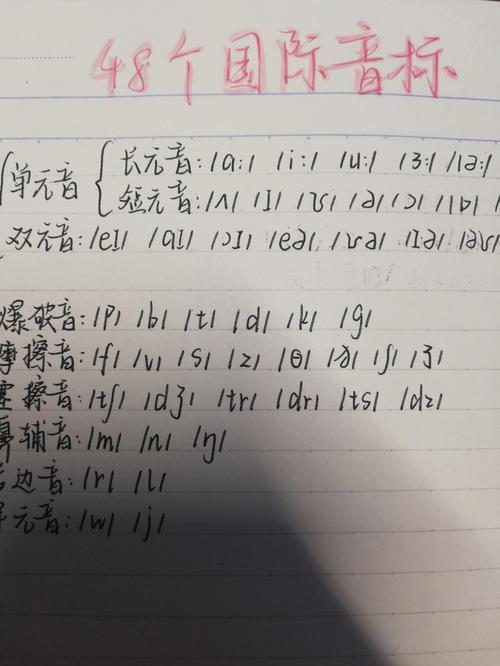 48个国际音标
单元音 { 长元音: /ɑ:/ /i:/ /u:/ /ɜ:/ /ɔ:/
短元音: /ʌ/ /ɪ/ /ʊ/ /ə/ /ɔ/ /ɒ/
双元音: /eɪ/ /aɪ/ /ɔɪ/ /eə/ /ʊə/ /ɪə/ /əʊ/
爆破音: /p/ /b/ /t/ /d/ /k/ /g/
摩擦音: /f/ /v/ /s/ /z/ /θ/ /ð/ /ʃ/ /ʒ/
塞擦音: /tʃ/ /dʒ/ /tr/ /dr/ /ts/ /dz/
鼻辅音: /m/ /n/ /ŋ/
边音: /r/ /l/
元音: /w/ /j/